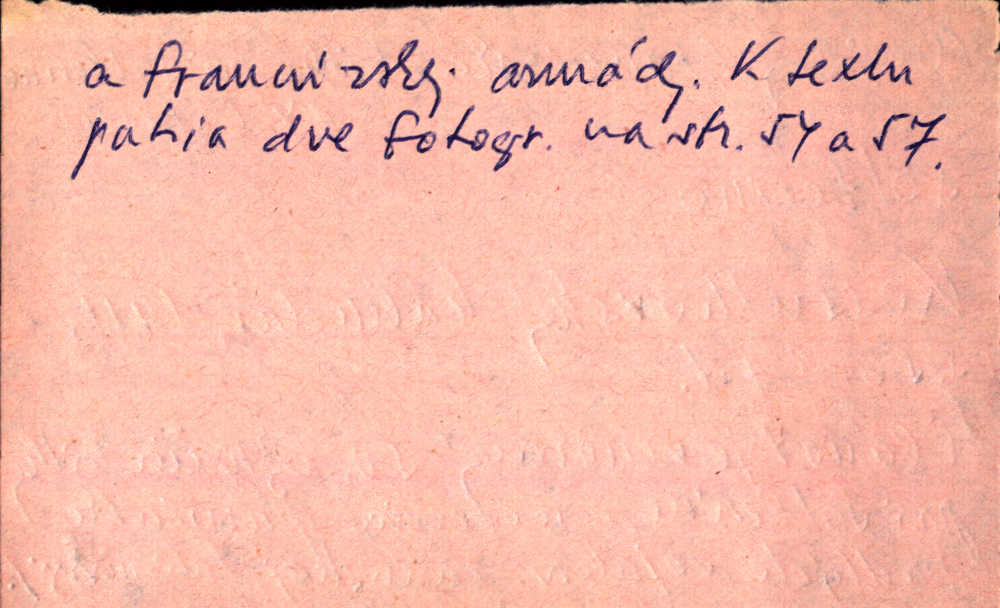 a francúzskej armády. K textu
patria dve fotogr. na str. 54 a 57.